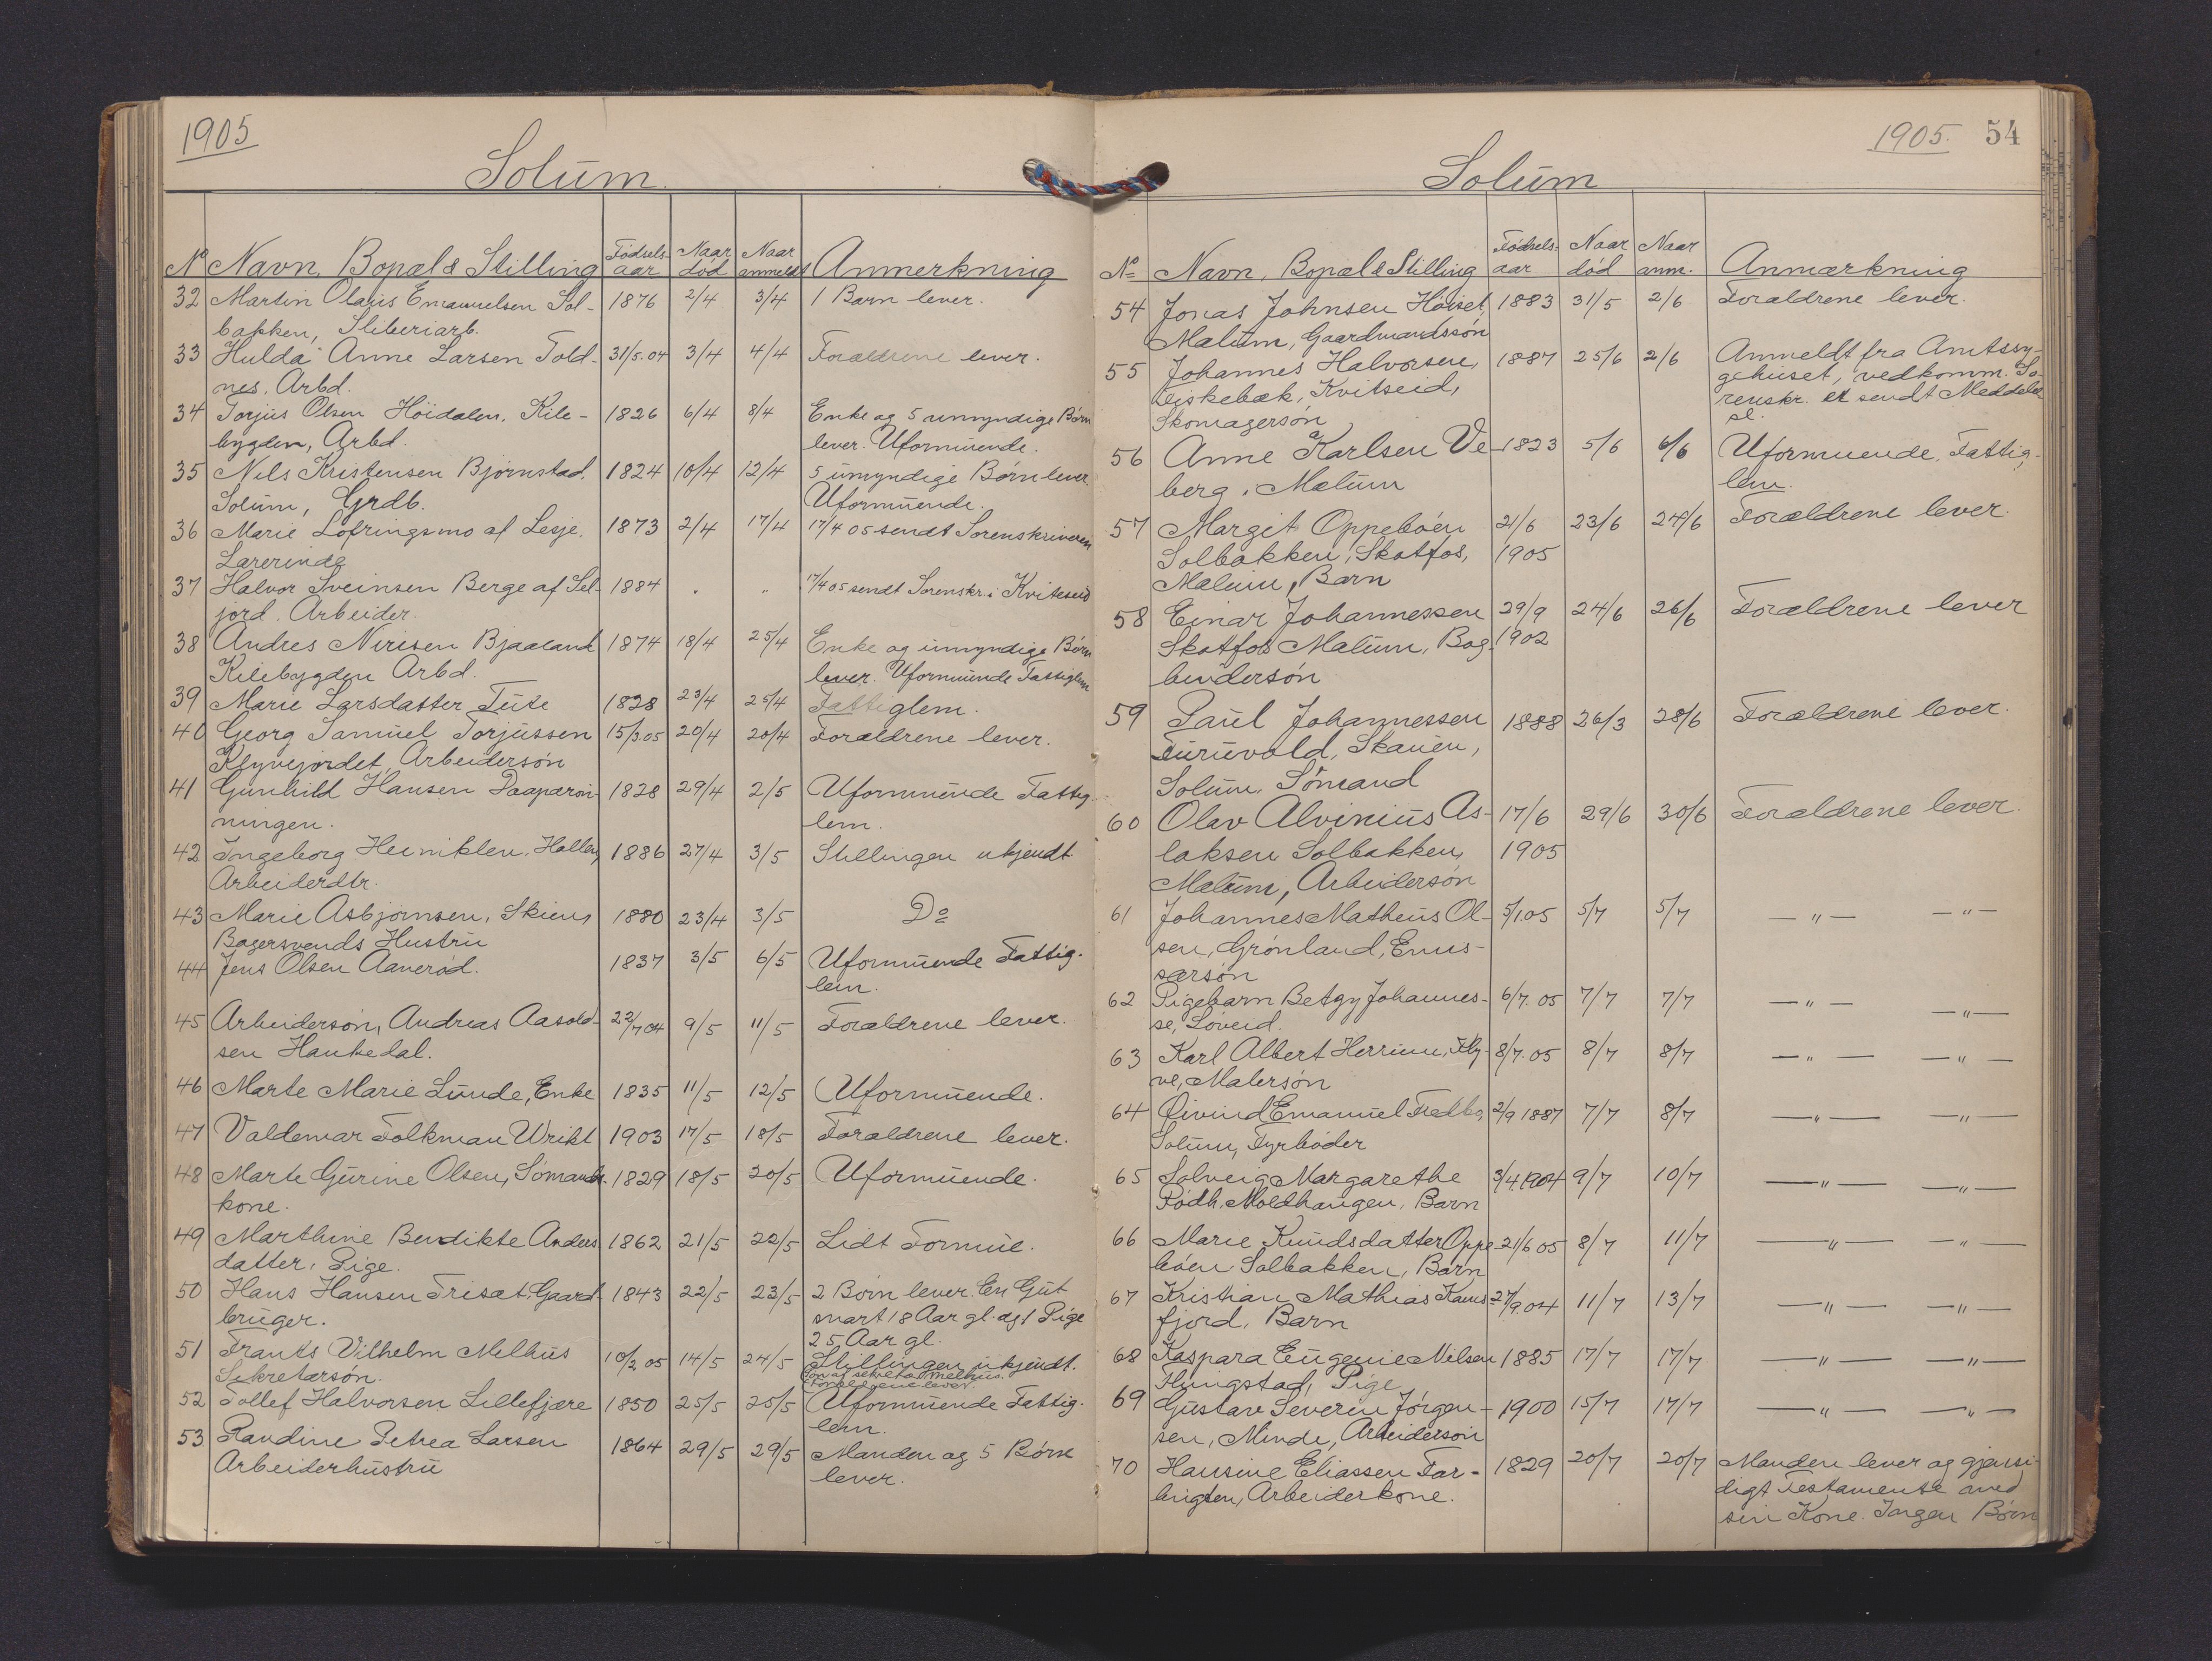 1905
Solum
No Navn, Bopæl & Stilling Fødsels aar Naar død Naar anmeldt Anmerkning
32 Martin Olaus Emanuelsen Sol- 1876 2/4 3/4 1 Barn lever.
bakken, Sliberiarb.
33 Hulda Anne Larsen Told- 31/5.04 3/4 4/4 Forældrene lever.
nes. Arbd.
34 Torjus Olsen Höidalen, Kile- 1826 6/4 8/4 Enke og 5 umyndige Børn
bygden, Arbd. lever. Uformuende.
35 Nils Kristensen Bjørnstad, 1824 10/4 12/4 5 umyndige Børn lever.
Solum, Grdb. Uformuende.
36 Marie Lofringsmo af Lesje, 1873 2/4 17/4 17/4 05 sendt Sorenskriveren
Lærerinde
37 Halvor Sveinsen Berge af Sel- 1884 " " 17/4 05 sendt Sorenskr. i Kviteseid
jord. Arbeider.
38 Andres Nirisen Bjaaland 1874 18/4 25/4 Enke og umyndige Børn
Kilebygden Arbd. lever. Uformuende Fattiglem
39 Marie Larsdatter Tufte 1828 23/4 25/4 Fattiglem.
40 Georg Samuel Torjussen 15/3.05 20/4 20/4 Forældrene lever.
Klyvejordet, Arbeidersøn
41 Gunhild Hansen Paaparøn- 1828 29/4 2/5 Uformuende Fattig-
ningen. lem.
42 Ingeborg Heimklen, Hollen, 1886 27/4 3/5 Stillingen ukjendt
Arbeiderdtr.
43 Marie Asbjørnsen, Skien, 1880 23/4 3/5 Do
Bagersvends Hustru
44 Jens Olsen Aaverød. 1837 3/5 6/5 Uformuende Fattig-
lem.
45 Arbeidersøn, Andreas Aasold- 22/7 04 9/5 11/5 Forældrene lever.
sen Haukedal.
46 Marte Marie Lunde, Enke 1835 11/5 12/5 Uformuende.
47 Valdemar Folkman Wrikt 1903 17/5 18/5 Forældrene lever.
48 Marte Gurine Olsen, Sømands- 1829 18/5 20/5 Uformuende.
kone.
49 Marthine Bendikte Anders 1862 21/5 22/5 Lidt Formue.
datter, Pige.
50 Hans Hansen Frisæt, Gaard- 1843 22/5 23/5 2 Børn lever. En Gut
bruger. snart 18 Aar gl. og 1 Pige
25 Aar gl.
51 Frants Vilhelm Melhus 10/2 05 14/5 24/5 Stillingen ukjendt.
Sekretærsøn. Søn af sekretær Melhus.
Forældrene lever.
52 Tollef Halvorsen Lillefjære 1850 25/5 25/5 Uformuende Fattig-
lem.
53 Randine Petrea Larsen 1864 29/5 29/5 Manden og 5 Børn
Arbeiderhustru lever.
1905. 54
Solum
No Navn, Bopæl & Stilling Fødsels- aar Naar død Naar anm. Anmærkning
54 Jonas Johnsen Høiset, 1883 31/5 2/6 Forældrene lever.
Mælum, Gaardmandssøn
55 Johannes Halvorsen, 1887 25/6 2/6 Anmeldt fra Amtssy-
Eiskebæk, Kvitseid, gehuset, vedkomm. So-
Skomagersøn renskr. er sendt Meddelel-
se.
56 Anne K Karlsen Ve- 1823 5/6 6/6 Uformuende, Fattig-
berg, Mælum lem.
57 Margit Oppebøen 21/6 23/6 24/6 Forældrene lever.
Solbakken, Skotfos, 1905
Mælum, Barn
58 Einar Johannessen 29/9 24/6 26/6 Forældrene lever
Skotfos Mælum, Bog- 1902
bindersøn
59 Paul Johannessen 1888 26/3 28/6 Forældrene lever.
Furuvold, Skauen,
Solum. Sømand
60 Olav Alvinius As- 17/6 29/6 30/6 Forældrene lever.
laksen Solbakken, 1905
Mælum, Arbeidersøn
61 Johannes Matheus Ol- 5/1.05 5/7 5/7 — " — — " —
sen, Grønland, Emis-
særsøn
62 Pigebarn Betzy Johannes- 6/7.05 7/7 7/7 — " — — " —
se, Løveid.
63 Karl Albert Herrum, Kly- 8/7.05 8/7 8/7 — " — — " —
ve, Malersøn
64 Øivind Emanuel Fredbo, 2/9 1887 7/7 8/7 — " — — " —
Solum, Fyrbøder
65 Solveig Margarethe 3/4 1904 9/7 10/7 — " — — " —
Rødh, Moldhaugen, Barn
66 Marie Knudsdatter Oppe- 21/6 05 8/7 11/7 — " — — " —
bøen Solbakken, Barn
67 Kristian Mathias Kams- 27/9.04 11/7 13/7 — " — — " —
fjord, Barn
68 Kaspara Eugenie Nilsen 1885 17/7 17/7 — " — — " —
Flungstad, Pige
69 Gustav Severin Jørgen- 1900 15/7 17/7 — " — — " —
sen, Minde, Arbeidersøn
70 Hansine Eliassen Far- 1829 20/7 20/7 Manden lever og gjensi-
brigten, Arbeiderkone. digt Testamente med
sin Kone. Ingen Børn